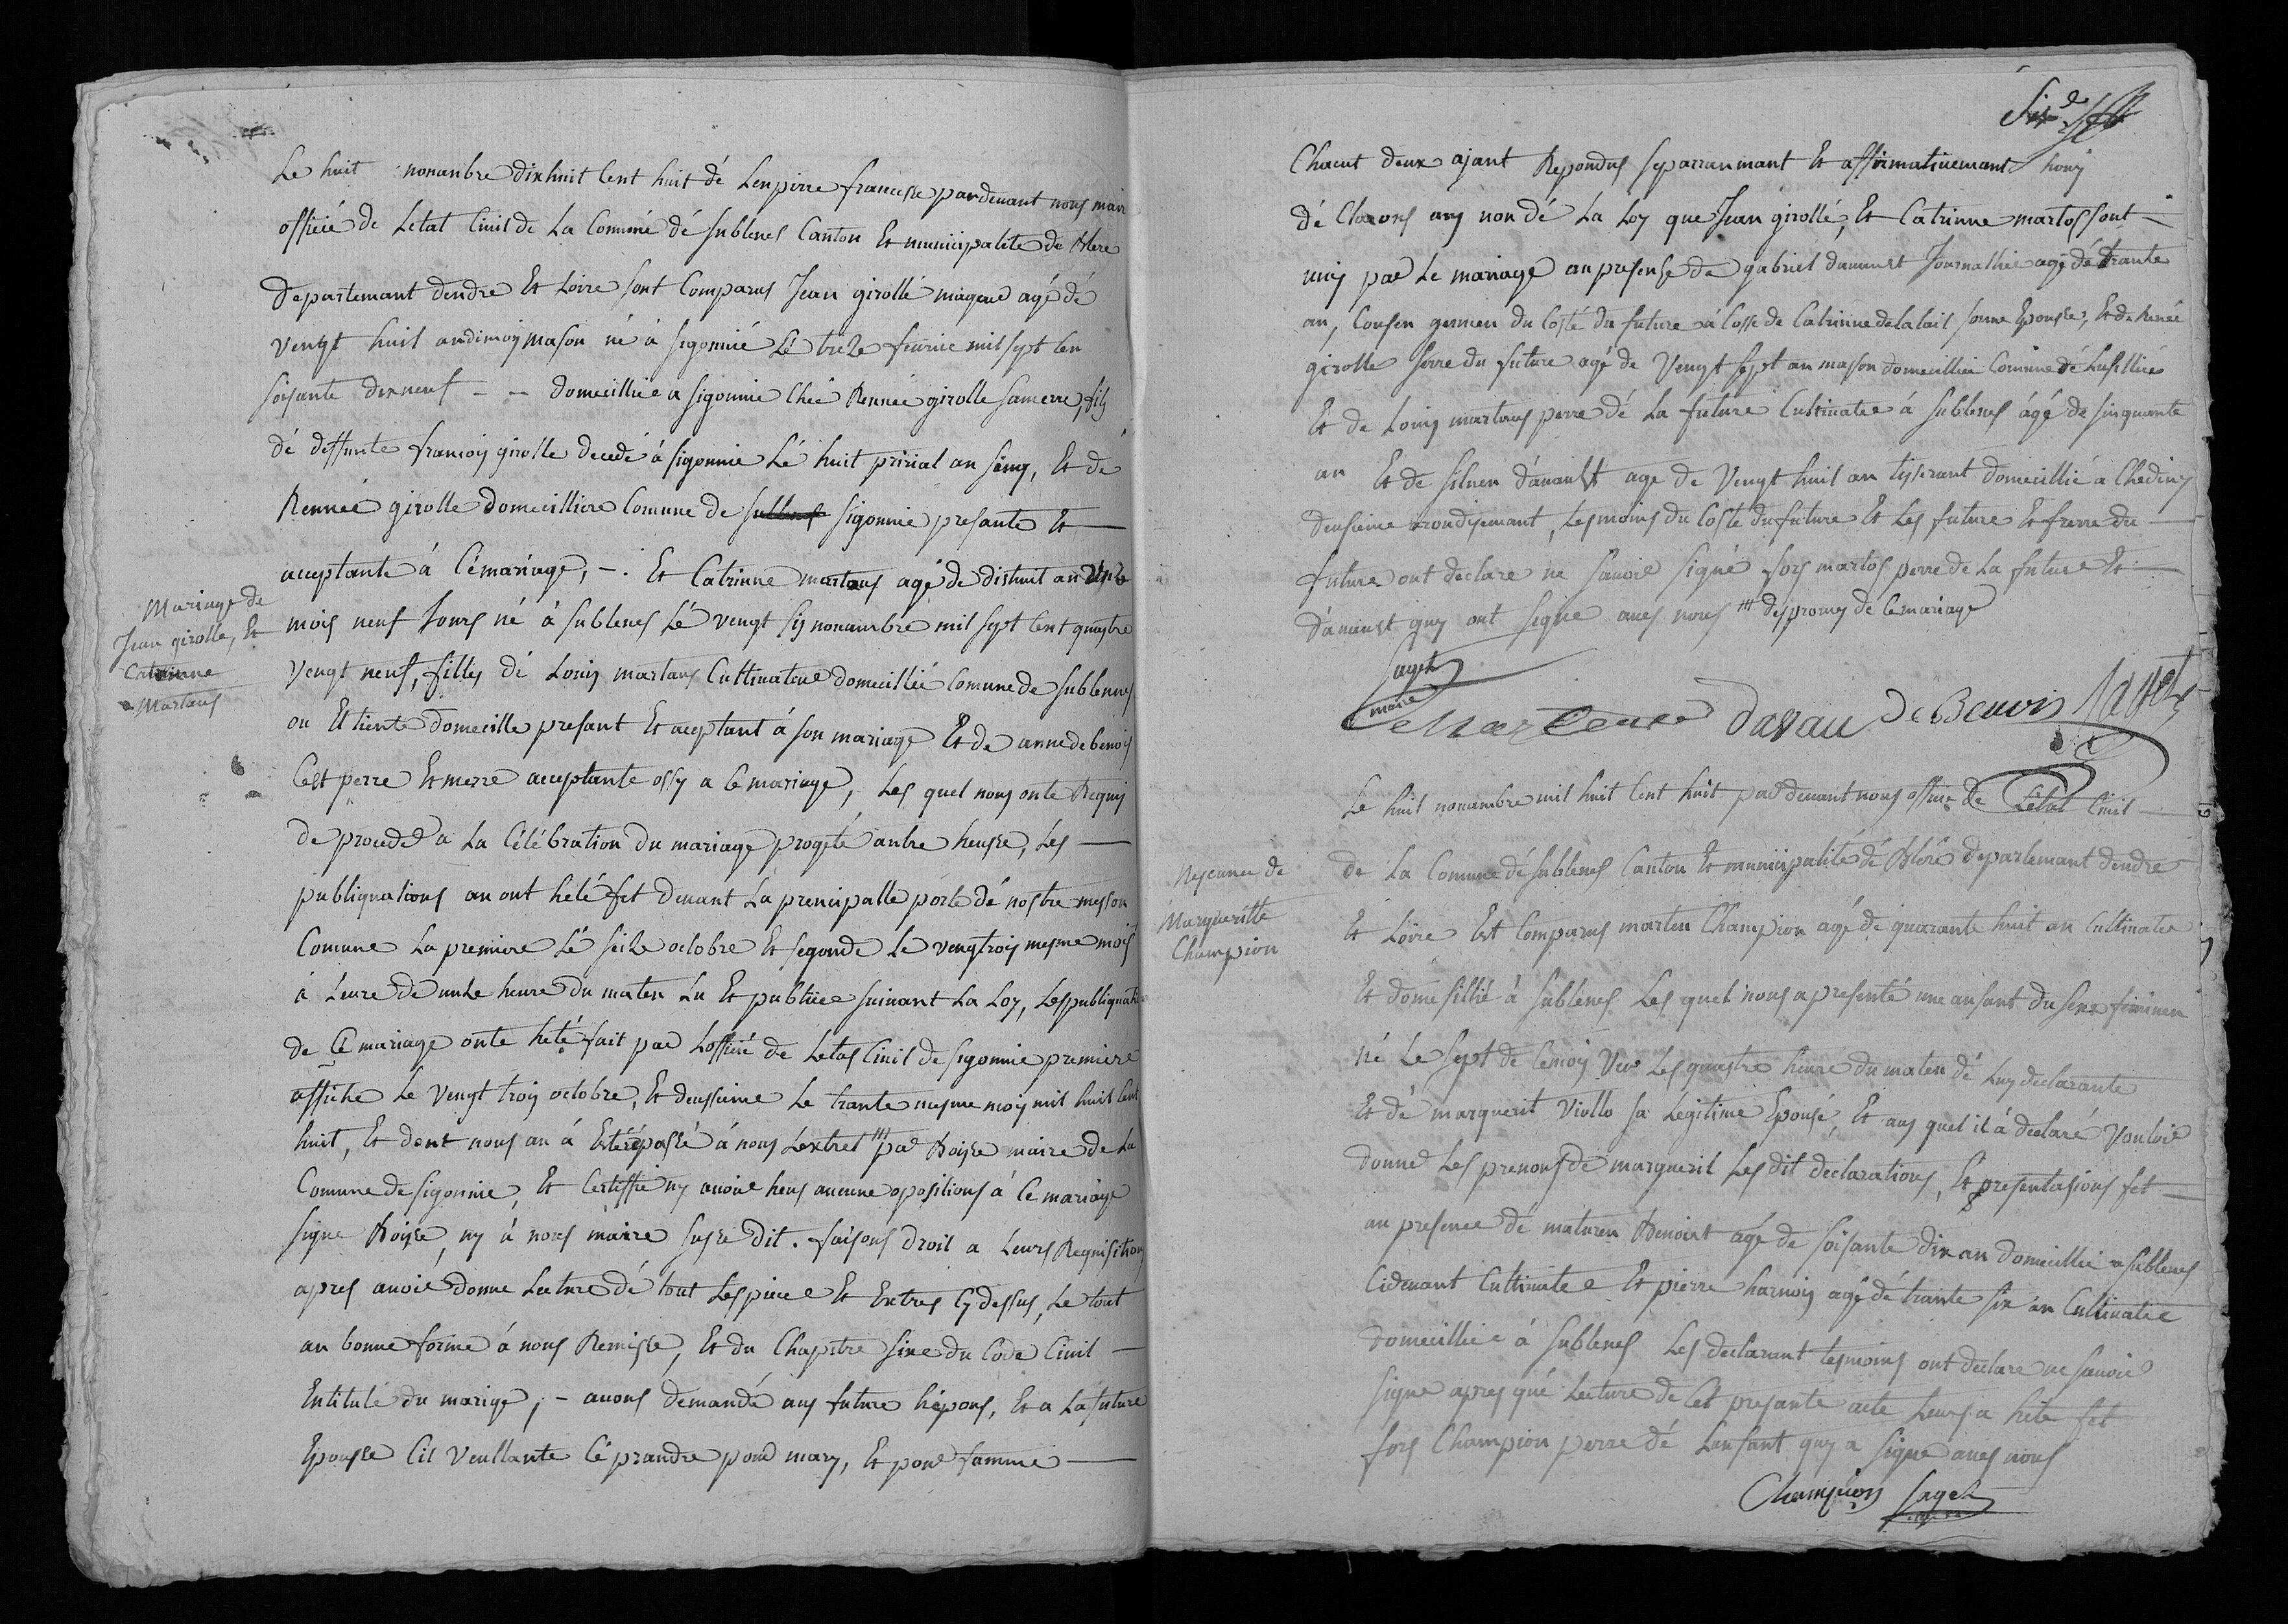 Le huit novanbre dixhuit Cent huit dé Lenpirre francese pardevant nous mair
officié de Letat Civil de La Comuné dé Sublenes Canton Et municipalite de Blere
departemant dendre Et Loire sont Comparus Jean girollé mageur agé dé
vengt huit an dimoy mason né à sigonnié Lé treize feuvrié mil sept Cen
soisante dixneuf - - domeicillié a sigonnie Ché Rennée girolle sa merre, fils
dé deffunte francoy girolle decedé à sigonnie Lé huit pririal an sinq, Et dé
Rennée girolle domeicilliere Comune de sigonnie presante Et
acceptante à Cé mariage, -. Et Catrinne martaus agé de dishuit an
mois neuf Jours né à sublenes Lé vengt sis novambre mil sept Cent quastre
vengt neuf, filles dé Louis martaus Cultivateur domeicillié Comune de sublennes
ou Et tiente domeicille presant Et aceptant à son mariage Et de anne debenois
Cest perre Et merre acceptante ossy a Ce mariage, Les quel nous onte Requis
de procede a La Célébration du mariage progété antre heusse, Les
publiquations an ont heté fet devant La prencipalle porte dé nostre meson
Comune La premiere Lé seize octobre Et segonde Le vengtrois mesme mois
à Leure de unze heure du maten Lu Et publiée suivant La Loy, Les publiquation
de Ce mariage onte heté fait par Loffisié de Letas Civil de sigonnie premiere
affiche Le vengt trois octobre, Et deussieme Le trante mesme mois mil huit Cent
huit, Et dont nous an à Eté repassé à nous Lextret par Boisse maire de La
Comune de sigonnie, Et Certiffié ny avoir heus aucune opositions à Ce mariage
signe Boisse, ny à nous maire susse dit. faisons droit a Leurs Requisition
apres avoir donne Lecture dé tout Les piece Et Extres Cy dessus, Le tout
an bonne forme à nous Remisse, Et du Chapitre sixe du Code Civil
Entitulé du marige, - avons demandé aus future hépous, Et a La future
Epousse Cil veullante Cé prandre pour mary, Et pour famme
Mariage de
Jean girolle, Et
Catrinne
Martaus
Chacut deux ajant Repondus separramant Et affirmativemant
dé Clarons aus non dé La Loy que Jean girollé, Et Catrinne martos sont
unis par Le mariage an presense de gabriel Journallié agé dé trante
an, Cousen germen du Costé du future à Cosse de Catrinne son Epousse, Et de Renée
girolle frere du future agé de vengt sept an masson domeicillié Comune dé Lusillié
Et de Louis martaus perre dé La future Cultivateur à sublenes âgé de sinquante
an Et de silven dâvault age de vengt huit an tiserant domeicillié a Chediny
deusieme arondisemant, tesmoins du Coste du future Et Les future Et frerre du
future ont declare ne savoir signé fors martos perre de La future Et
quy ont signe aves nous des promes de Ce mariage
saget
maire
Martaus davau De Benois saget
Le huit novambre mil huit Cent huit par devant nous officie de Létat Civil
de La Comune dé sublenes Canton Et municipalité dé Bléré departemant dendre
Et Loire Est Comparus marten Champion agé de quarante huit an Cultivateur
Et domesillié à sublenes Les quel nous a presenté une anfant du sexe feminen
né Le sept de Cemois Vere Les quastre heure du maten dé Luy declarante
Et dé marguerit Viollo sa Legitime Epousé, Et aus quel il à declaré Vouloir
donne Les prenons de marguerit Les dit declarations, Et presentasions fet
an presence de maturen Benoist agé de soisante dix an domeicillie a sublenes
Cidevant Cultivateur Et pierre harnois agé dé trante six an Cultivateur
domeicillié à sublenes Les declarant tesmoins ont declare ne savoir
signe apres qué Lecture de Cet presante acte Leurs a hete fet
fors Champion perre dé Lanfant quy a signe aves nous
Champion saget
Nesence de
Margueritte
Champion